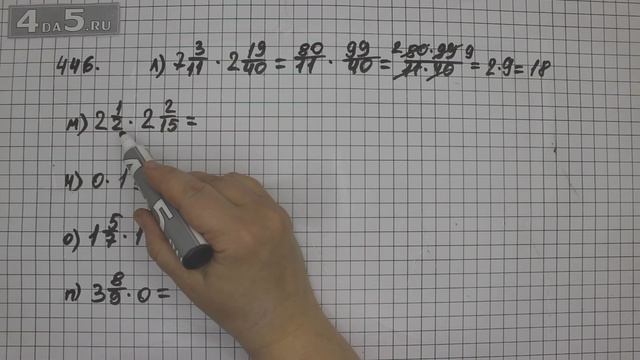 4DA5.RU
446. л) 7 3/11 · 2 19/40 = 80/11 · 99/40 = 2 80·99 9/11·40 = 2·9 = 18
м) 2 1/2 · 2 2/15 =
н) 0 · 1
о) 1 5/7 · 1
п) 3 8/9 · 0 =